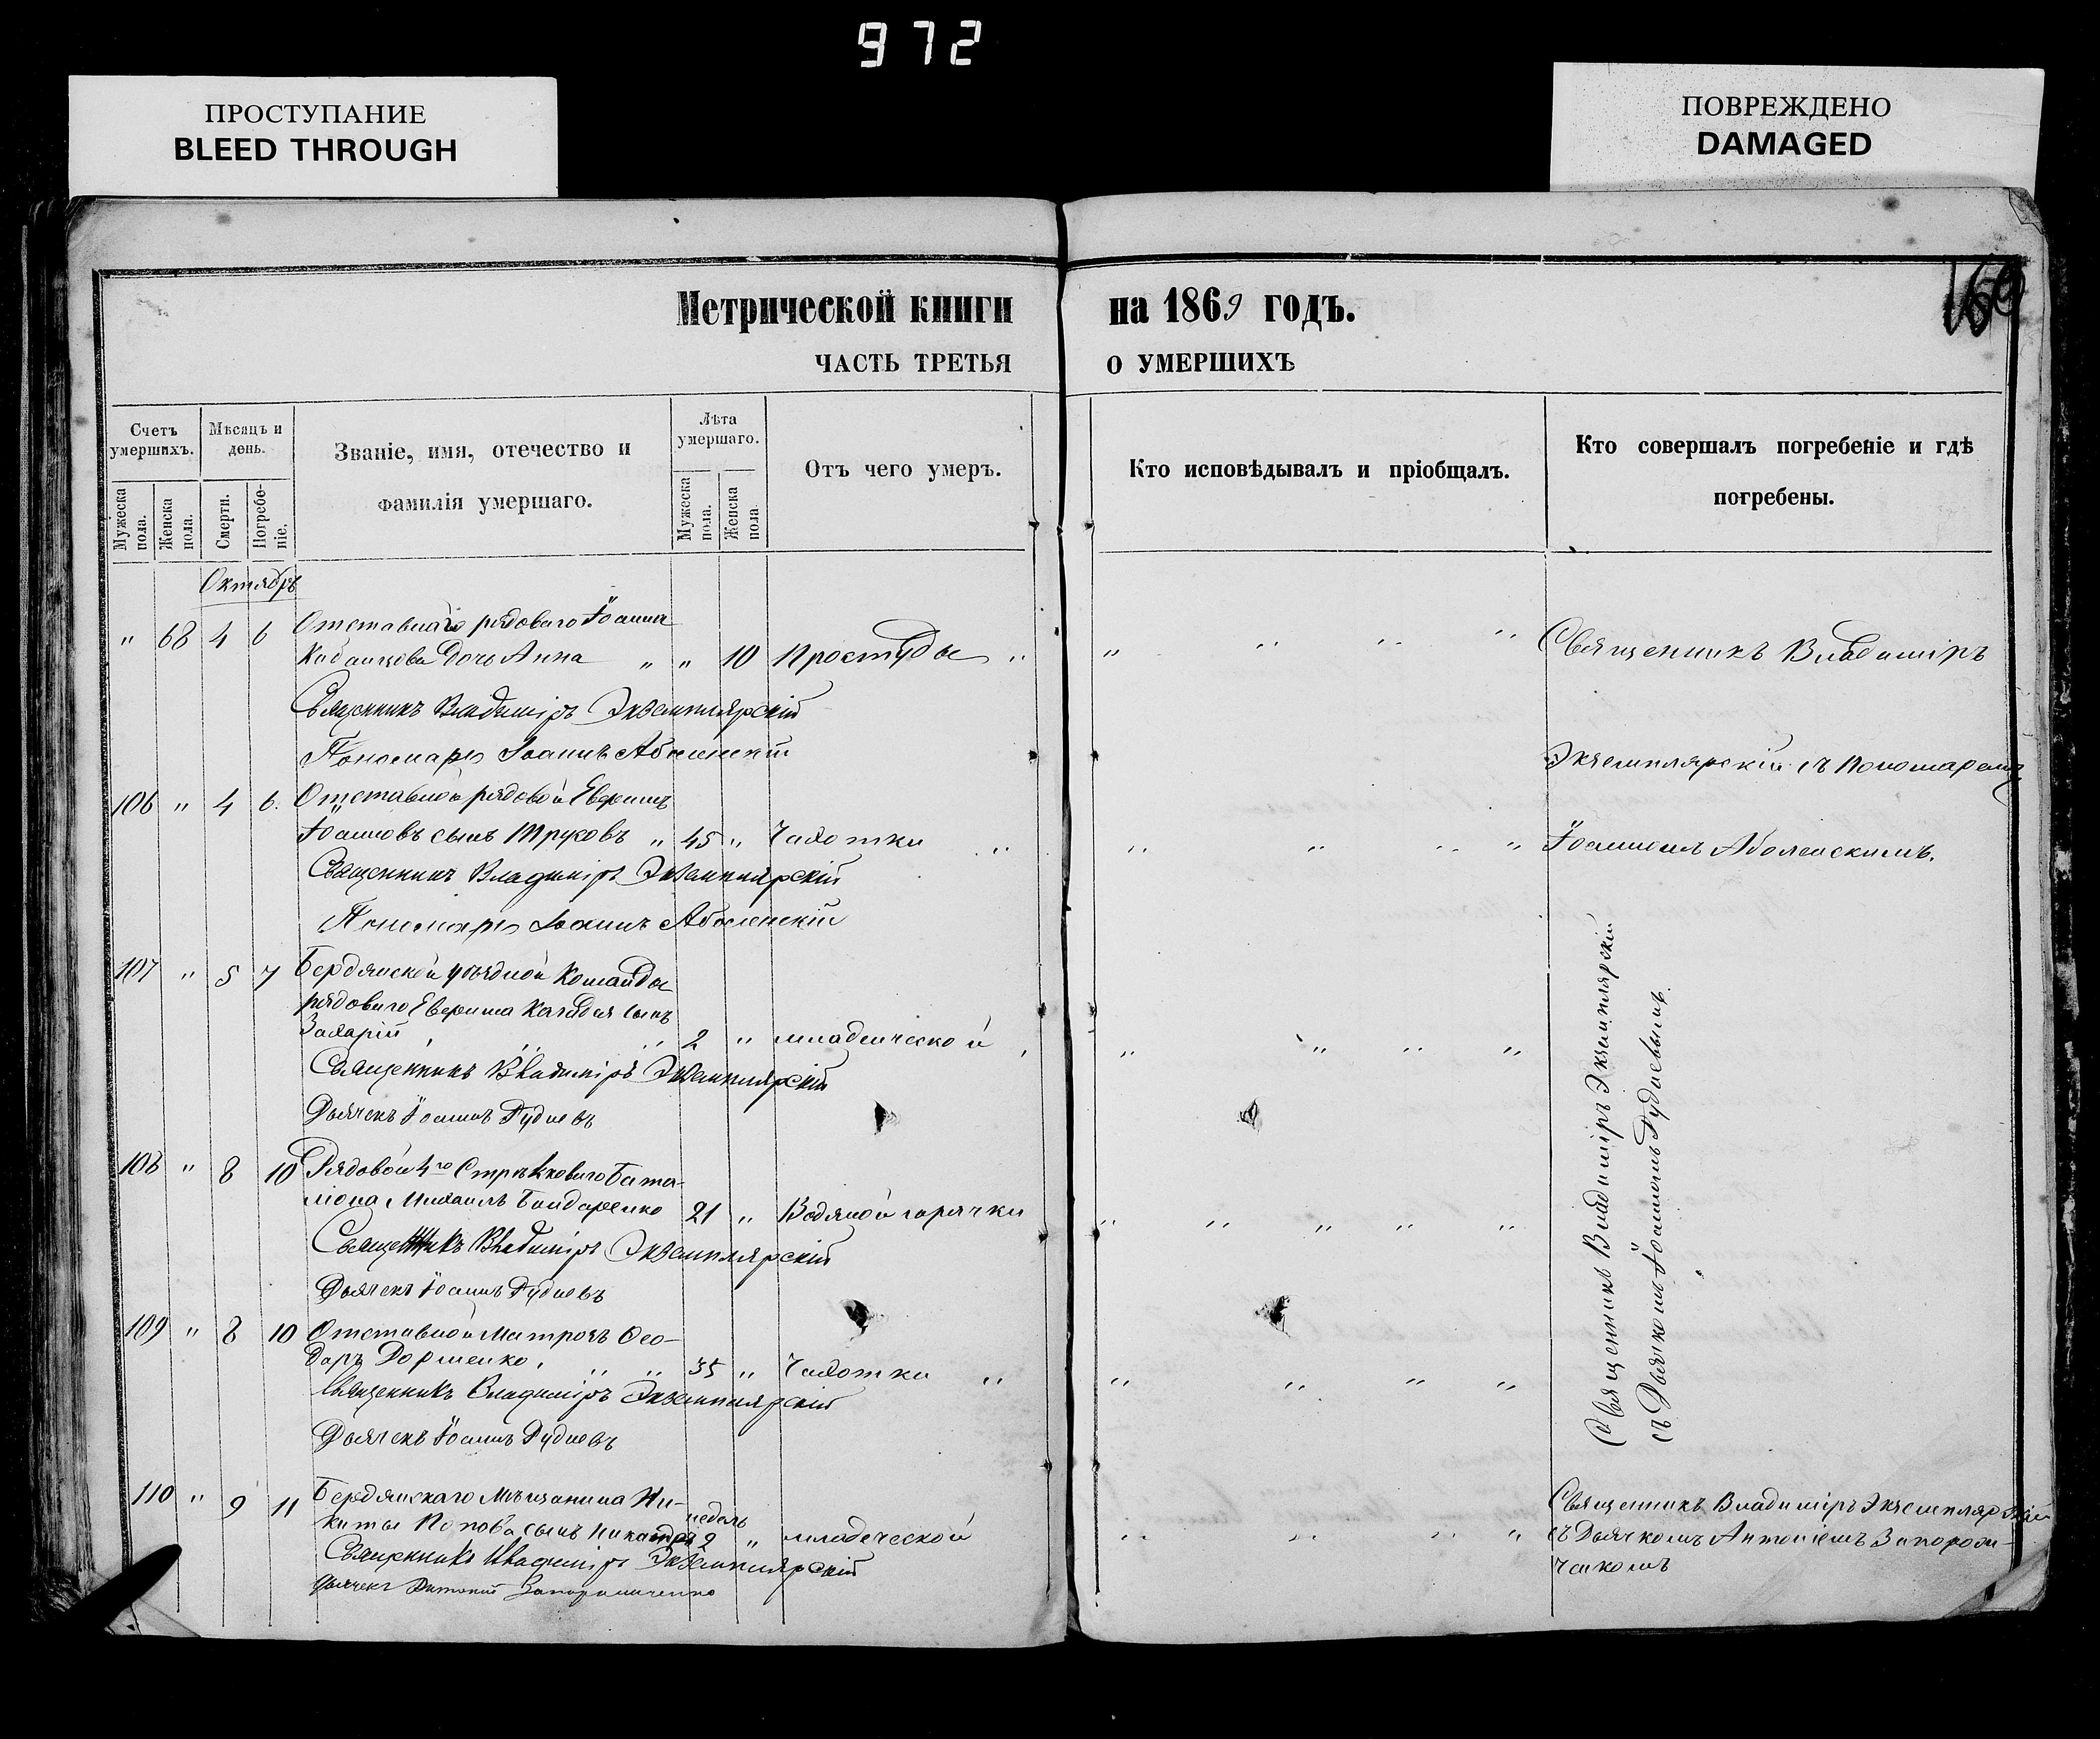 972
ПРОСТУПАНИЕ
BLEED THROUGH
ПОВРЕЖДЕНО
DAMAGED
Метрической книги на 1869 годъ.
169
ЧАСТЬ ТРЕТЬЯ О УМЕРШИХЪ
Счетъ умершихъ.
Мужеска пола.
Женска пола.
Мѣсяцъ и день.
Смерти.
Погребеніе.
Званіе, имя, отечество и фамилія умершаго.
Лѣта умершаго.
Мужеска пола.
Женска пола.
Отъ чего умеръ.
Кто исповѣдывалъ и пріобщалъ.
Кто совершалъ погребеніе и гдѣ погребены.
Октябрь
" 68 4 6 Отставнаго рядоваго Іоанна
дочь Анна " " 10 Простуды " " " " " Священникъ Владиміръ
Священникъ Владиміръ Экземплярскій
Пономарь Іоаннъ Аболенскій
Экземплярскій съ Пономаремъ
106 " 4 6. Отставной рядовой Евфимъ
Іоанновъ сынъ Трусовъ " 45 " Чахотки " " " " " Іоанномъ Аболенскимъ.
Священникъ Владиміръ Экземплярскій
Пономарь Іоаннъ Аболенскій
107 " 5 7 Бердянской уѣздной Команды
рядоваго Евфима сынъ
Захарій " " 2 " младенческой " " " " "
Священникъ Владиміръ Экземплярскій
Дьячекъ Іоаннъ Рудневъ
108 " 8 10 Рядовой 4го Стрѣлковаго Бата-
ліона Михаилъ Бондаренко 21 " Водяной горячки " " " " "
Священникъ Владиміръ Экземплярскій
Дьячекъ Іоаннъ Рудневъ
109 " 8 10 Отставной Матрозъ Ѳео-
даръ Дорошенко. " " 35 " Чахотки " " " " "
Священникъ Владиміръ Экземплярскій
Дьячекъ Іоаннъ Рудневъ
Священникъ Владиміръ Экземплярскій
съ Дьячкомъ Іоанномъ Рудневымъ.
110 " 9 11 Бердянскаго Мѣщанина Ни-
киты Попова сынъ Никандръ недель 2 " младенческой " " " "
Священникъ Владиміръ Экземплярскій
Дьячекъ Антоній Запорожченко
Священникъ Владиміръ Экземплярскій
съ Дьячкомъ Антоніемъ Запорож-
ченкомъ